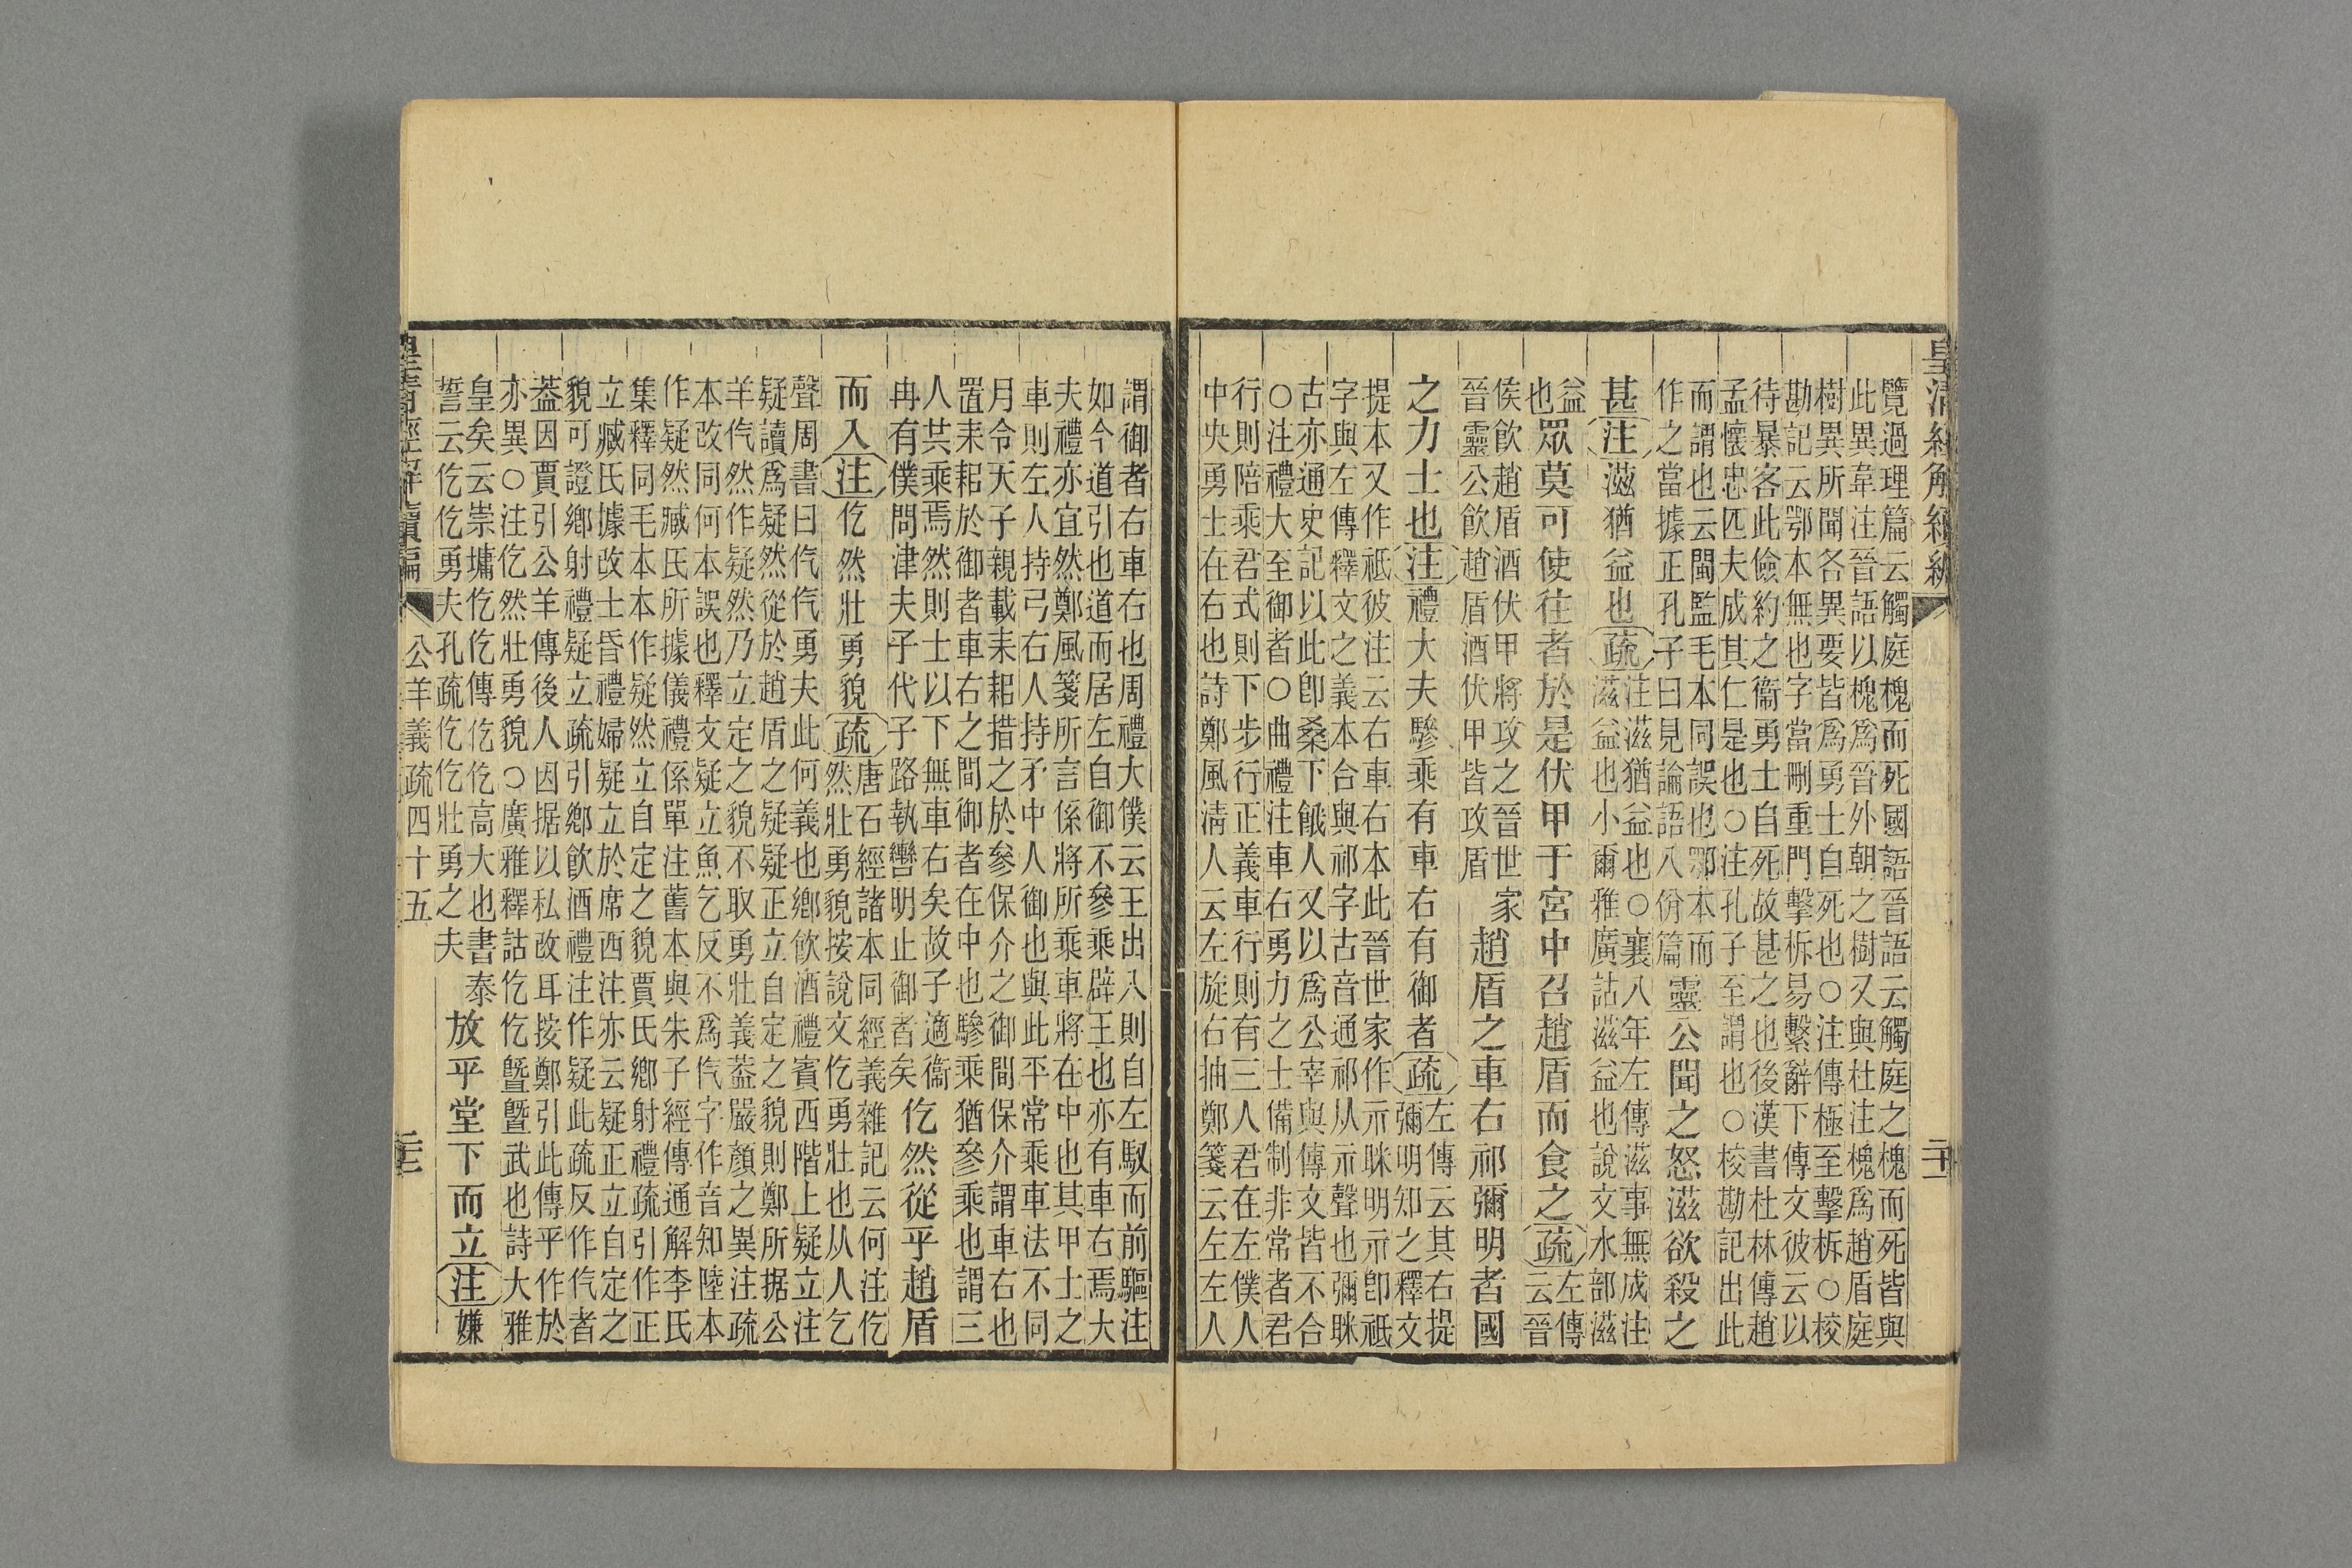 皇清經解續編
覽過理篇云觸庭槐而死國語晉語云觸庭之槐而死皆與
此異韋注晉語以槐爲晉外朝之樹又與杜注槐爲趙盾庭
樹異所聞各異要皆爲勇士自死也○注傳極至擊柝○校
勘記云鄂本無也字當刪重門擊柝易繫辭下傳文彼云以
待暴客此儉約之衞勇士自死故甚之也後漢書杜林傳趙
孟懷忠匹夫成其仁是也○注孔子至謂也○校勘記出此
而謂也云閩監毛本同誤也鄂本而
作之當據正孔子曰見論語八佾篇
靈公聞之怒滋欲殺之
甚注滋猶益也疏
注滋猶益也○襄八年左傳滋事無成注
滋益也小爾雅廣詁滋益也說文水部滋
益
也
眾莫可使往者於是伏甲于宮中召趙盾而食之疏
左傳
云晉
侯飮趙盾酒伏甲將攻之晉世家
晉靈公飮趙盾酒伏甲皆攻盾
趙盾之車右祁彌明者國
之力士也注禮大夫驂乘有車右有御者疏
左傳云其右提
彌明知之釋文
提本又作祗彼注云右車右本此晉世家作示眯明示卽祗
字與左傳釋文之義本合與祁字古音通祁从示聲也彌眯
古亦通史記以此卽桑下餓人又以爲公宰與傳文皆不合
○注禮大至御者○曲禮注車右勇力之士備制非常者君
行則陪乘君式則下步行正義車行則有三人君在左僕人
中央勇士在右也詩鄭風淸人云左旋右抽鄭箋云左左人
謂御者右車右也周禮大僕云王出入則自左馭而前驅注
如今道引也道而居左自御不參乘辟王也亦有車右焉大
夫禮亦宜然鄭風箋所言係將所乘車將在中也其甲士之
車則左人持弓右人持矛中人御也與此平常乘車法不同
月令天子親載耒耜措之於參保介之御閒保介謂車右也
置耒耜於御者車右之間御者在中也驂乘猶參乘也謂三
人共乘焉然則士以下無車右矣故子適衞
冉有僕問津夫子代子路執轡明止御者矣
仡然從乎趙盾
而入注仡然壯勇貌疏
唐石經諸本同經義雜記云何注仡
然壯勇貌按說文仡勇壯也从人乞
聲周書曰仡仡勇夫此何義也鄕飮酒禮賓西階上疑立注
疑讀爲疑然從於趙盾之疑疑正立自定之貌則鄭所据公
羊仡然作疑然乃立定之貌不取勇壯義葢嚴顏之異注疏
本改同何本誤也釋文疑立魚乞反不爲仡字作音知陸本
作疑然臧氏所據儀禮係單注舊本與朱子經傳通解李氏
集釋同毛本本作疑然立自定之貌賈氏鄕射禮疏引作正
立臧氏據改士昏禮婦疑立於席西注亦云疑正立自定之
貌可證鄕射禮疑立疏引鄕飮酒禮注作疑此疏反作仡者
葢因賈引公羊傳後人因据以私改耳按鄭引此傳乎作於
亦異○注仡然壯勇貌○廣雅釋詁仡仡曁曁武也詩大雅
皇矣云崇墉仡仡傳仡仡高大也書泰
誓云仡仡勇夫孔疏仡仡壯勇之夫
放乎堂下而立注嫌
皇淸經解續編
公羊義疏四十五